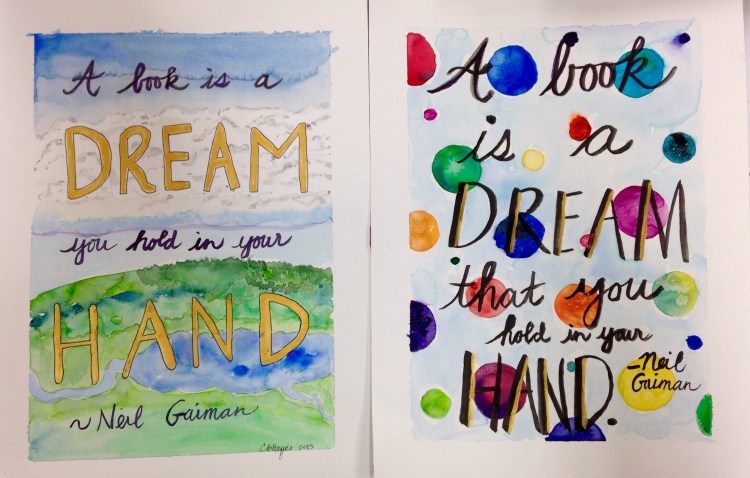 A book is a
DREAM
you hold in your
HAND
~ Neil Gaiman
A book
is a
DREAM
that you
hold in your
HAND.
-Neil
Gaiman